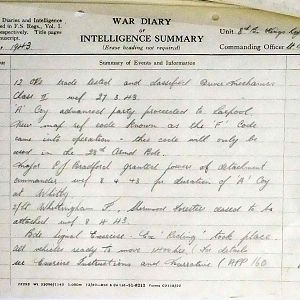 WAR DIARY
of
INTELLIGENCE SUMMARY
(Erase heading not required)
Diaries and Intelligence
ed in F.S. Regs., Vol. I.
respectively. Title pages
nuscript.
Unit
Commanding Officer
1943
Summary of Events and Information
13 ORs trade tested and classified Driver Mechanics
Class wef 27.3.43
'A' Coy advanced party proceeded to
New map ref code known as the 'F' Code
came into operation - this code will only be
used in the 28th Armd Bde.
Major Bradford granted powers of detachment
commander wef 8.4.43 for duration of 'A' Coy
at Whitby
2/Lt F. Sherwood Foresters ceased to be
attached wef 8.4.43.
Bde Signal Exercise took place
all vehicles ready to move 1100 hrs (For details
see Exercise Instructions and Narrative (APP 160